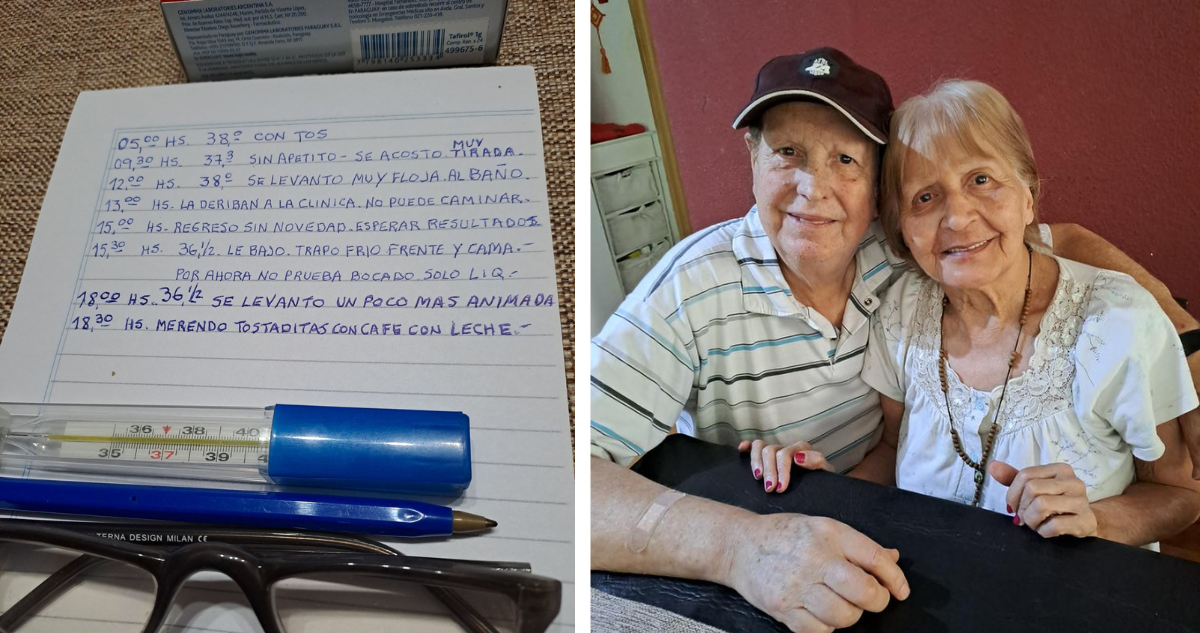 GENOMMA LABORATORIES ARGENTINA S.A.
GENOMMA LABORATORIES PARAGUAY S.R.L.
Tafirol® 1g
499675-6
7798140253334
05,00 HS. 38,0 CON TOS
09,30 HS. 37,3 SIN APETITO - SE ACOSTO MUY TIRADA.
12,00 HS. 38,0 SE LEVANTO MUY FLOJA. AL BAÑO.
13,00 HS. LA DERIBAN A LA CLINICA. NO PUEDE CAMINAR.
15,00 HS. REGRESO SIN NOVEDAD. ESPERAR RESULTADOS
15,30 HS. 36,1/2 LE BAJO. TRAPO FRIO FRENTE Y CAMA.-
POR AHORA NO PRUEBA BOCADO SOLO LIQ.-
18,00 HS. 36 1/2 SE LEVANTO UN POCO MAS ANIMADA
18,30 HS. MERENDO TOSTADITAS CON CAFE CON LECHE.-
36 38 40
35 37 39
TERNA DESIGN MILAN CE